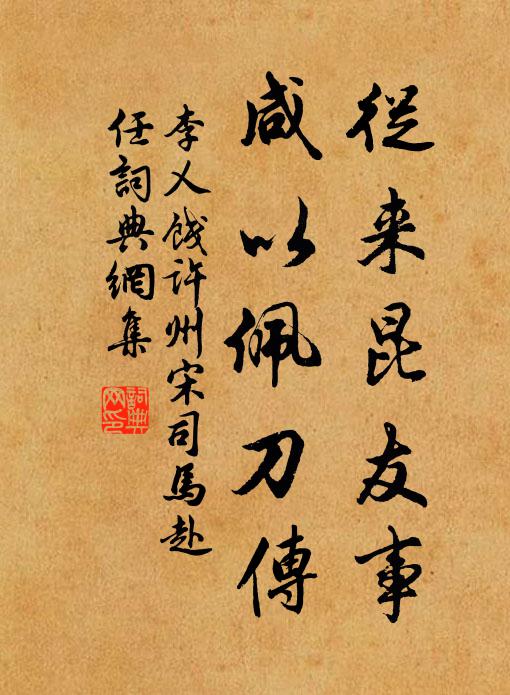 從来昆友事
咸以佩刀傳
李乂餞許州宋司馬赴
任詞典網集
詞典
网印